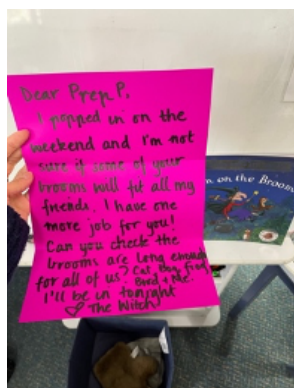 Dear Prep P,
I popped in on the
weekend and I'm not
sure if some of your
brooms will fit all my
friends. I have one
more job for you!
Can you check the
brooms are long enough
for all of us? Cat, Dog, frog,
Bird + Me.
I'll be in tonight
The Witch
on the Broom